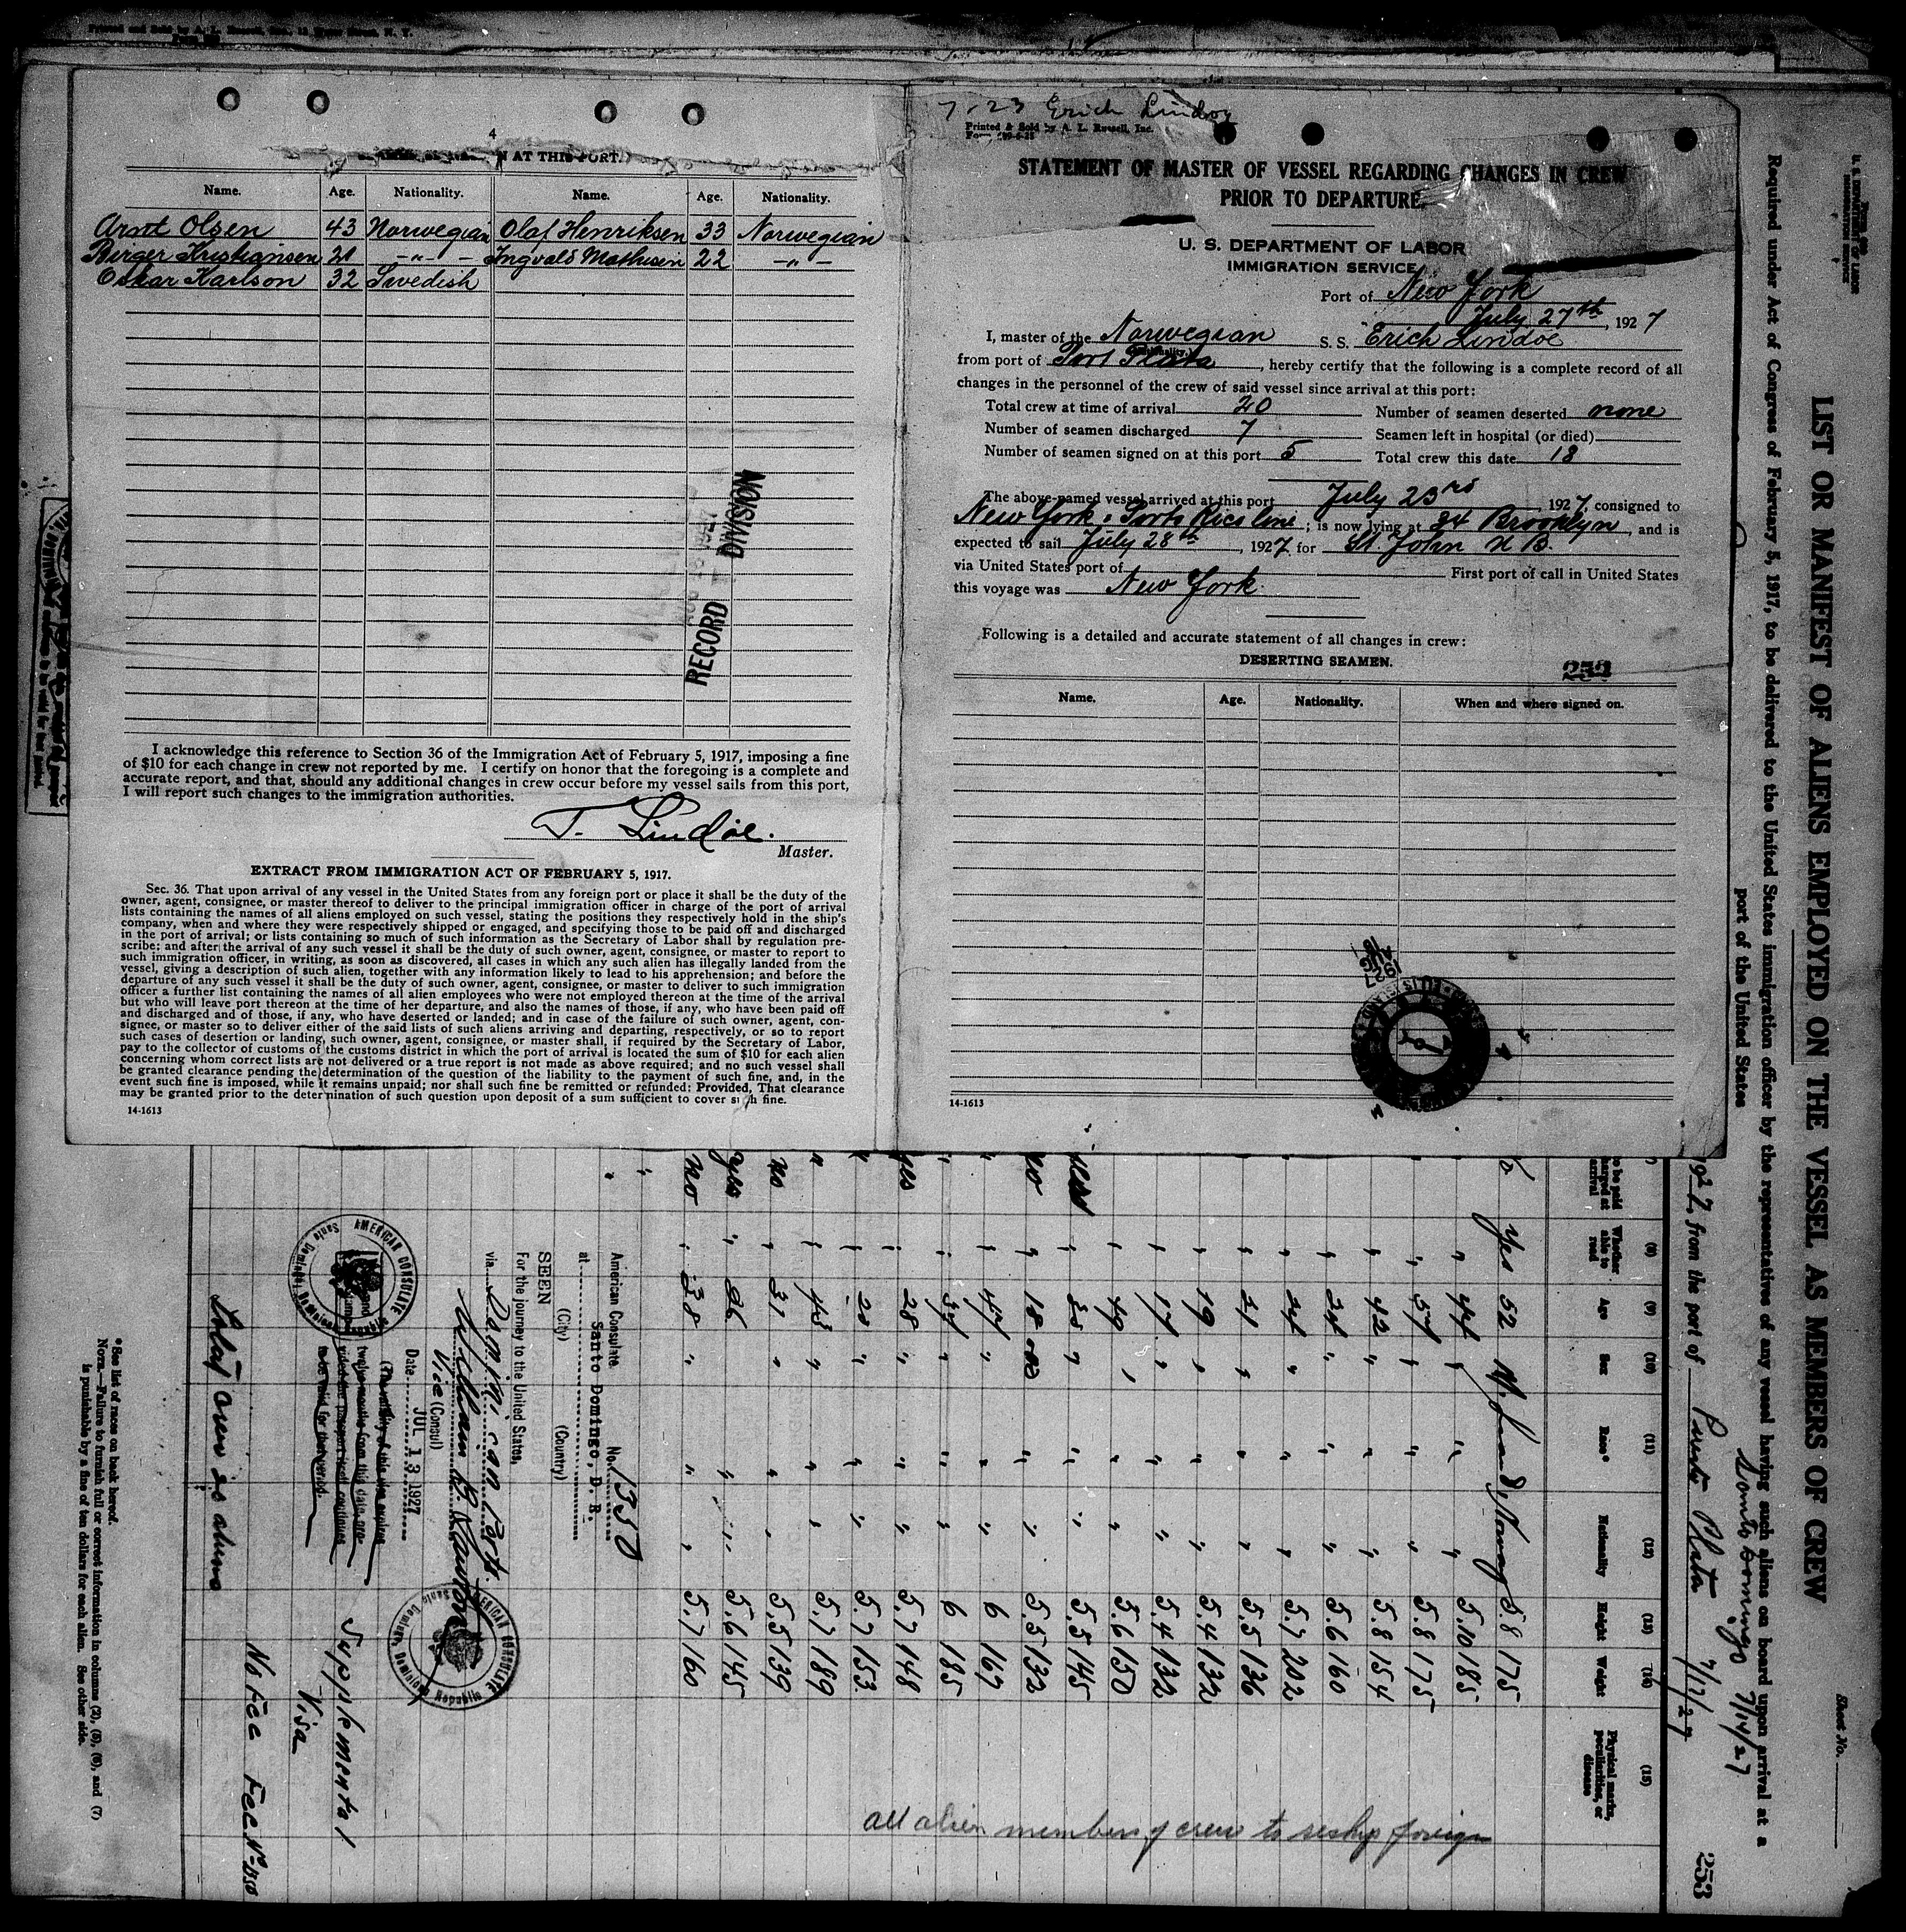 4
N AT THIS PORT.
Name. Age. Nationality. Name. Age. Nationality.
Arnt Olsen 43 Norwegian Olaf Henriksen 33 Norwegian
Birger Kristiansen 21 -"- - Ingvald Mathisen 22 -"-
Oskar Karlson 32 Swedish
RECORD DIVISION
I acknowledge this reference to Section 36 of the Immigration Act of February 5, 1917, imposing a fine
of $10 for each change in crew not reported by me. I certify on honor that the foregoing is a complete and
accurate report, and that, should any additional changes in crew occur before my vessel sails from this port,
I will report such changes to the immigration authorities.
T. Lindøe.
Master.
EXTRACT FROM IMMIGRATION ACT OF FEBRUARY 5, 1917.
Sec. 36. That upon arrival of any vessel in the United States from any foreign port or place it shall be the duty of the
owner, agent, consignee, or master thereof to deliver to the principal immigration officer in charge of the port of arrival
lists containing the names of all aliens employed on such vessel, stating the positions they respectively hold in the ship's
company, when and where they were respectively shipped or engaged, and specifying those to be paid off and discharged
in the port of arrival; or lists containing so much of such information as the Secretary of Labor shall by regulation pre-
scribe; and after the arrival of any such vessel it shall be the duty of such owner, agent, consignee, or master to report to
such immigration officer, in writing, as soon as discovered, all cases in which any such alien has illegally landed from the
vessel, giving a description of such alien, together with any information likely to lead to his apprehension; and before the
departure of any such vessel it shall be the duty of such owner, agent, consignee, or master to deliver to such immigration
officer a further list containing the names of all alien employees who were not employed thereon at the time of the arrival
but who will leave port thereon at the time of her departure, and also the names of those, if any, who have been paid off
and discharged and of those, if any, who have deserted or landed; and in case of the failure of such owner, agent, con-
signee, or master so to deliver either of the said lists of such aliens arriving and departing, respectively, or so to report
such cases of desertion or landing, such owner, agent, consignee, or master shall, if required by the Secretary of Labor,
pay to the collector of customs of the customs district in which the port of arrival is located the sum of $10 for each alien
concerning whom correct lists are not delivered or a true report is not made as above required; and no such vessel shall
be granted clearance pending the determination of the question of the liability to the payment of such fine, and, in the
event such fine is imposed, while it remains unpaid; nor shall such fine be remitted or refunded: Provided, That clearance
may be granted prior to the determination of such question upon deposit of a sum sufficient to cover such fine.
14-1613
7-23 Erich Lindoe
Printed & Sold by A. L. Russell, Inc.
STATEMENT OF MASTER OF VESSEL REGARDING CHANGES IN CREW
PRIOR TO DEPARTURE
U. S. DEPARTMENT OF LABOR
IMMIGRATION SERVICE
Port of New York
July 27th, 1927
I, master of the Norwegian S. S. Erich Lindøe
from port of Port Plata, hereby certify that the following is a complete record of all
changes in the personnel of the crew of said vessel since arrival at this port:
Total crew at time of arrival 20 Number of seamen deserted none
Number of seamen discharged 7 Seamen left in hospital (or died)
Number of seamen signed on at this port 5 Total crew this date 18
The above-named vessel arrived at this port July 23rd, 1927, consigned to
New York & Porto Rico line; is now lying at 34 Brooklyn, and is
expected to sail July 28th, 1927 for St. John N B.
via United States port of First port of call in United States
this voyage was New York
Following is a detailed and accurate statement of all changes in crew:
DESERTING SEAMEN. 253
Name. Age. Nationality. When and where signed on.
1927
14-1613
Sheet No.
LIST OR MANIFEST OF ALIENS EMPLOYED ON THE VESSEL AS MEMBERS OF CREW
Required under Act of Congress of February 5, 1917, to be delivered to the United States immigration officer by the representatives of any vessel having such aliens on board upon arrival at a
port of the United States
Santo Domingo 7/14/27
1927, from the port of Puerto Plata 7/17/27
253
(8) (9) (10) (11) (12) (13) (14) (15)
Whether able to read Age Sex Race* Nationality Height Weight Physical marks, peculiarities, or disease
yes 52 M Scand. Norway 5.8 175
" 44 " " " 5.10 185
" 57 " " " 5.8 175
" 42 " " " 5.8 154
" 24 " " " 5.6 160
" 24 " " " 5.7 202
" 21 " " " 5.5 136
" 19 " " " 5.4 132
" 17 " " " 5.4 132
" 49 " " " 5.6 150
yes " " " " 5.5 145
no " 18 " " " 5.5 132
" " " " 6 167
" " " " 6 185
yes " 28 " " " 5.7 148
" " 20 " " " 5.7 153
" " 43 " " " 5.7 189
no " 31 " " " 5.5 139
yes " 26 " " " 5.6 145
no " 38 " " " 5.7 160
all alien members of crew to reship foreign
American Consulate No. 1350
at Santo Domingo, D. R.
(City) (Country)
SEEN
For the journey to the United States,
via Dominican Ports.
William B. Lawton
Vice (Consul)
Date JUL 13 1927
AMERICAN CONSULATE
Santo Domingo, Dominican Republic
AMERICAN CONSULATE
Santo Domingo, Dominican Republic
Supplemental
Visa
No Fee Fee No 1350
Total crew is aliens
*See list of races on back hereof.
NOTE.—Failure to furnish full or correct information in columns (2), (5), (6), and (7)
is punishable by a fine of ten dollars for each alien. See other side.